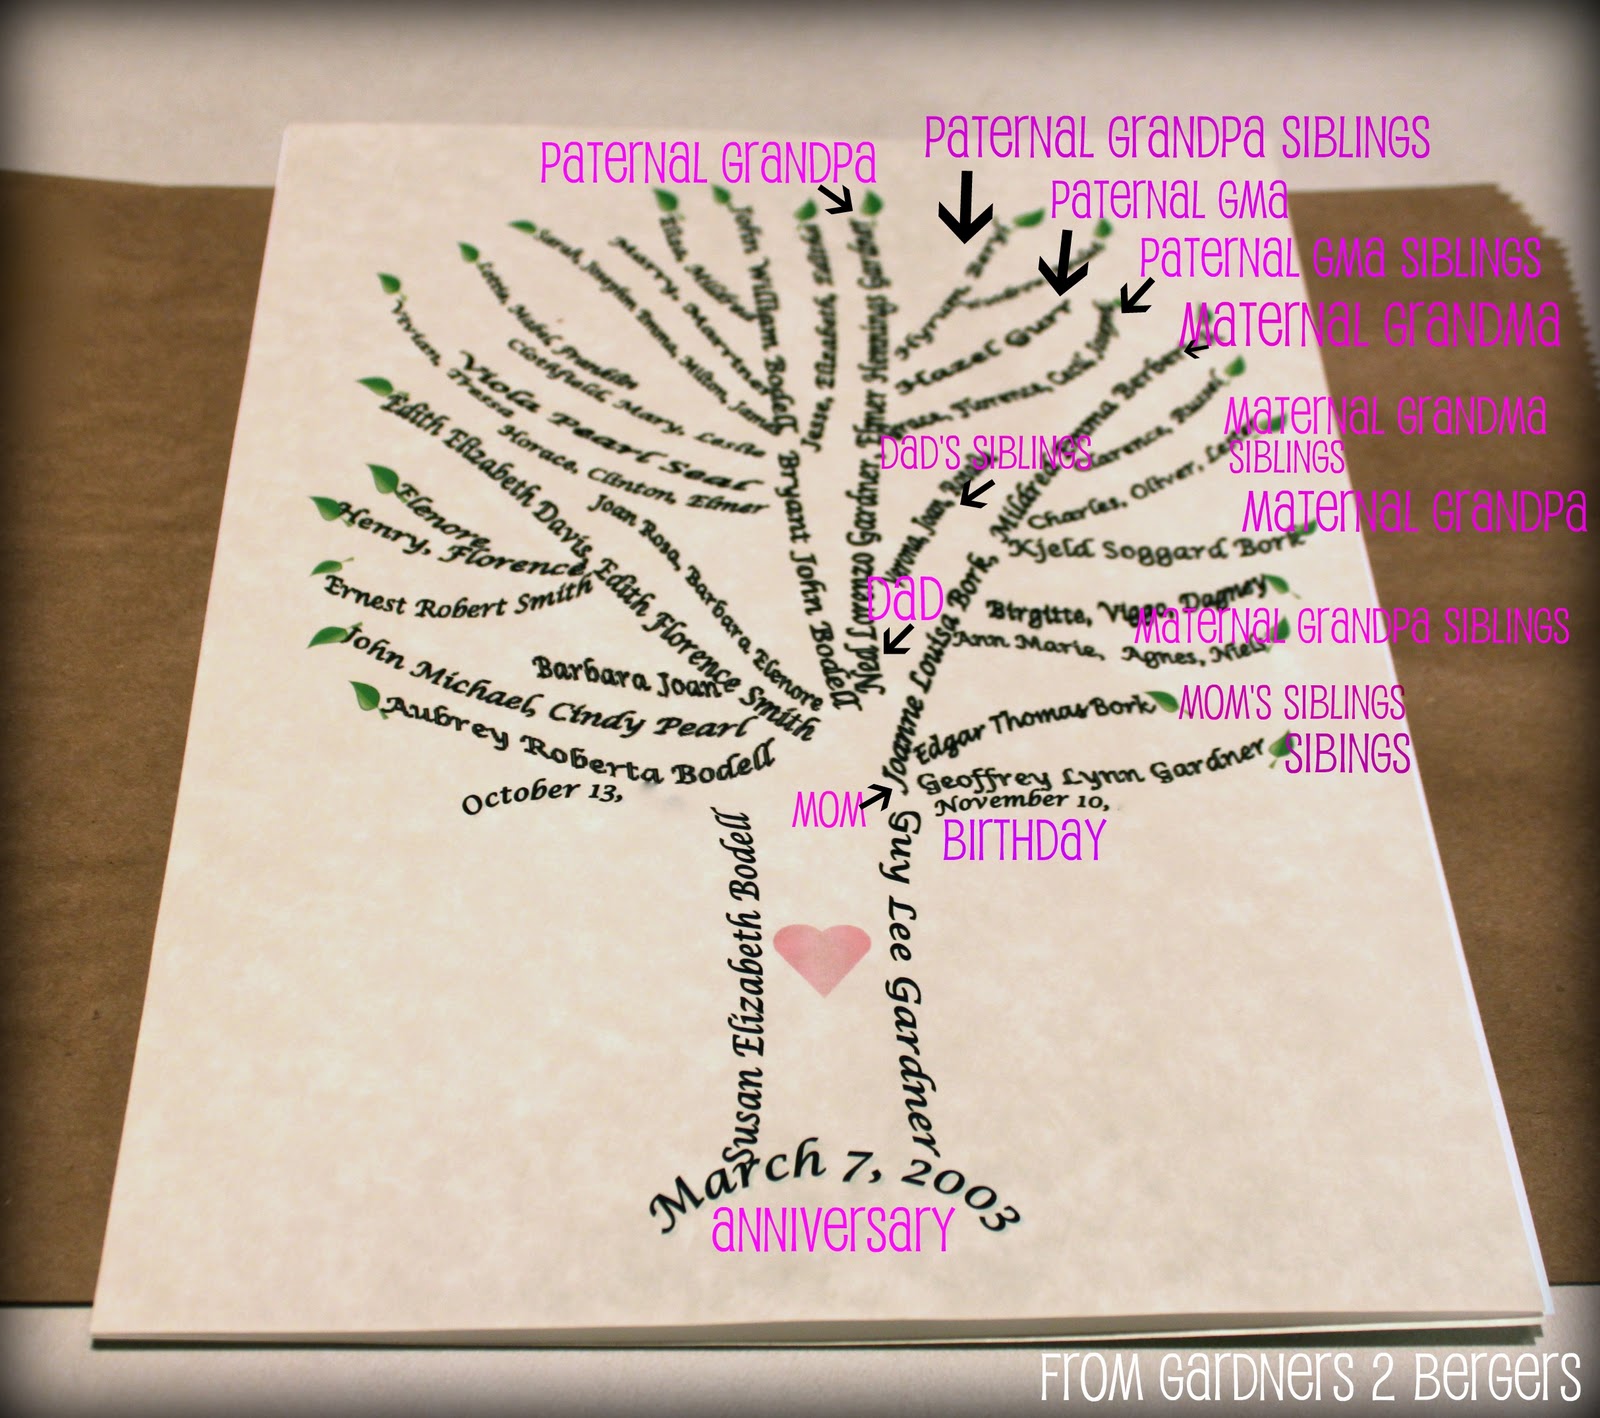 PATERNAL GRANDPA
PATERNAL GRANDPA SIBLINGS
PATERNAL GMA
PATERNAL GMA SIBLINGS
MATERNAL GRANDMA
MATERNAL GRANDMA
SIBLINGS
MATERNAL GRANDPA
MATERNAL GRANDPA SIBLINGS
MOM'S SIBLINGS
SIBINGS
DAD'S SIBLINGS
DAD
MOM
BIRTHDAY
Vivian, Tressa Horace, Clinton, Elmer
Viola Pearl Seal
Lettie, Mabel, Franklin
Clothfield, Mary, Leslie
Sarah, Josephn Emma, Milton, James
Marry, Marriner
Eliza, Mildred
John William Bodell Bryant John Bodell
Jesse, Elizabeth,
Ned Lorenzo Gardner, Elmer Hennings Gardner
Hyrum Beryl
Hazel Gurr
Florence, Cecil, Joseph
Verona, Joan,
Joanne Louisa Bork, Mildred Emma Berber
Clarence, Russel
Charles, Oliver,
Kjeld Soggard Bork
Birgitte, Viggo, Dagney
Ann Marie, Agnes, Niels
Edgar Thomas Bork
Geoffrey Lynn Gardner
November 10,
Edith Elizabeth Davis, Edith Florence Smith
Joan Rosa, Barbara Elenore
Elenore
Henry, Florence,
Ernest Robert Smith
Barbara Joan
John Michael, Cindy Pearl
Aubrey Roberta Bodell
October 13,
Susan Elizabeth Bodell
Guy Lee Gardner
March 7, 2003
ANNIVERSARY
FROM GARDNERS 2 BERGERS